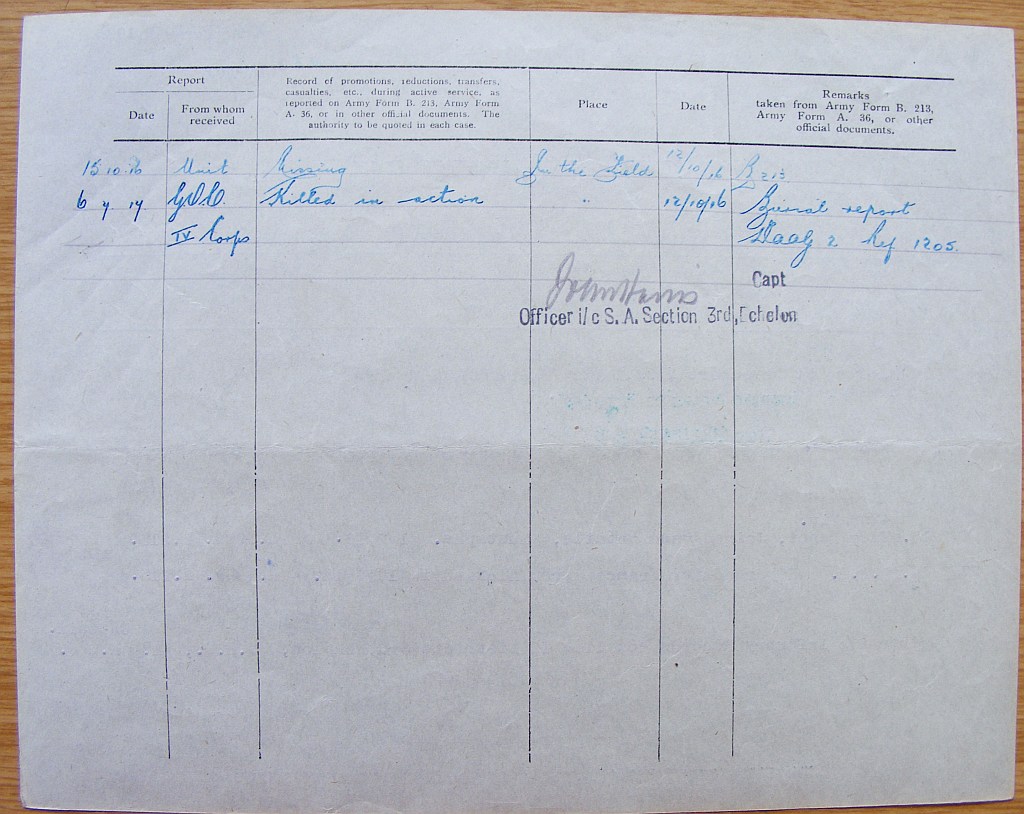 Report
Date
From whom
received
Record of promotions, reductions, transfers,
casualties, etc., during active service, as
reported on Army Form B. 213, Army Form
A. 36, or in other official documents. The
authority to be quoted in each case.
Place
Date
Remarks
taken from Army Form B. 213,
Army Form A. 36, or other
official documents.
15 10 16 Unit Missing In the Field 12/10/16 B 213
6 7 17 G.O.C. Killed in action " 12/10/16 Burial report
IV Corps 2 Ref 1205.
Capt
Officer i/c S. A. Section 3rd, Echelon